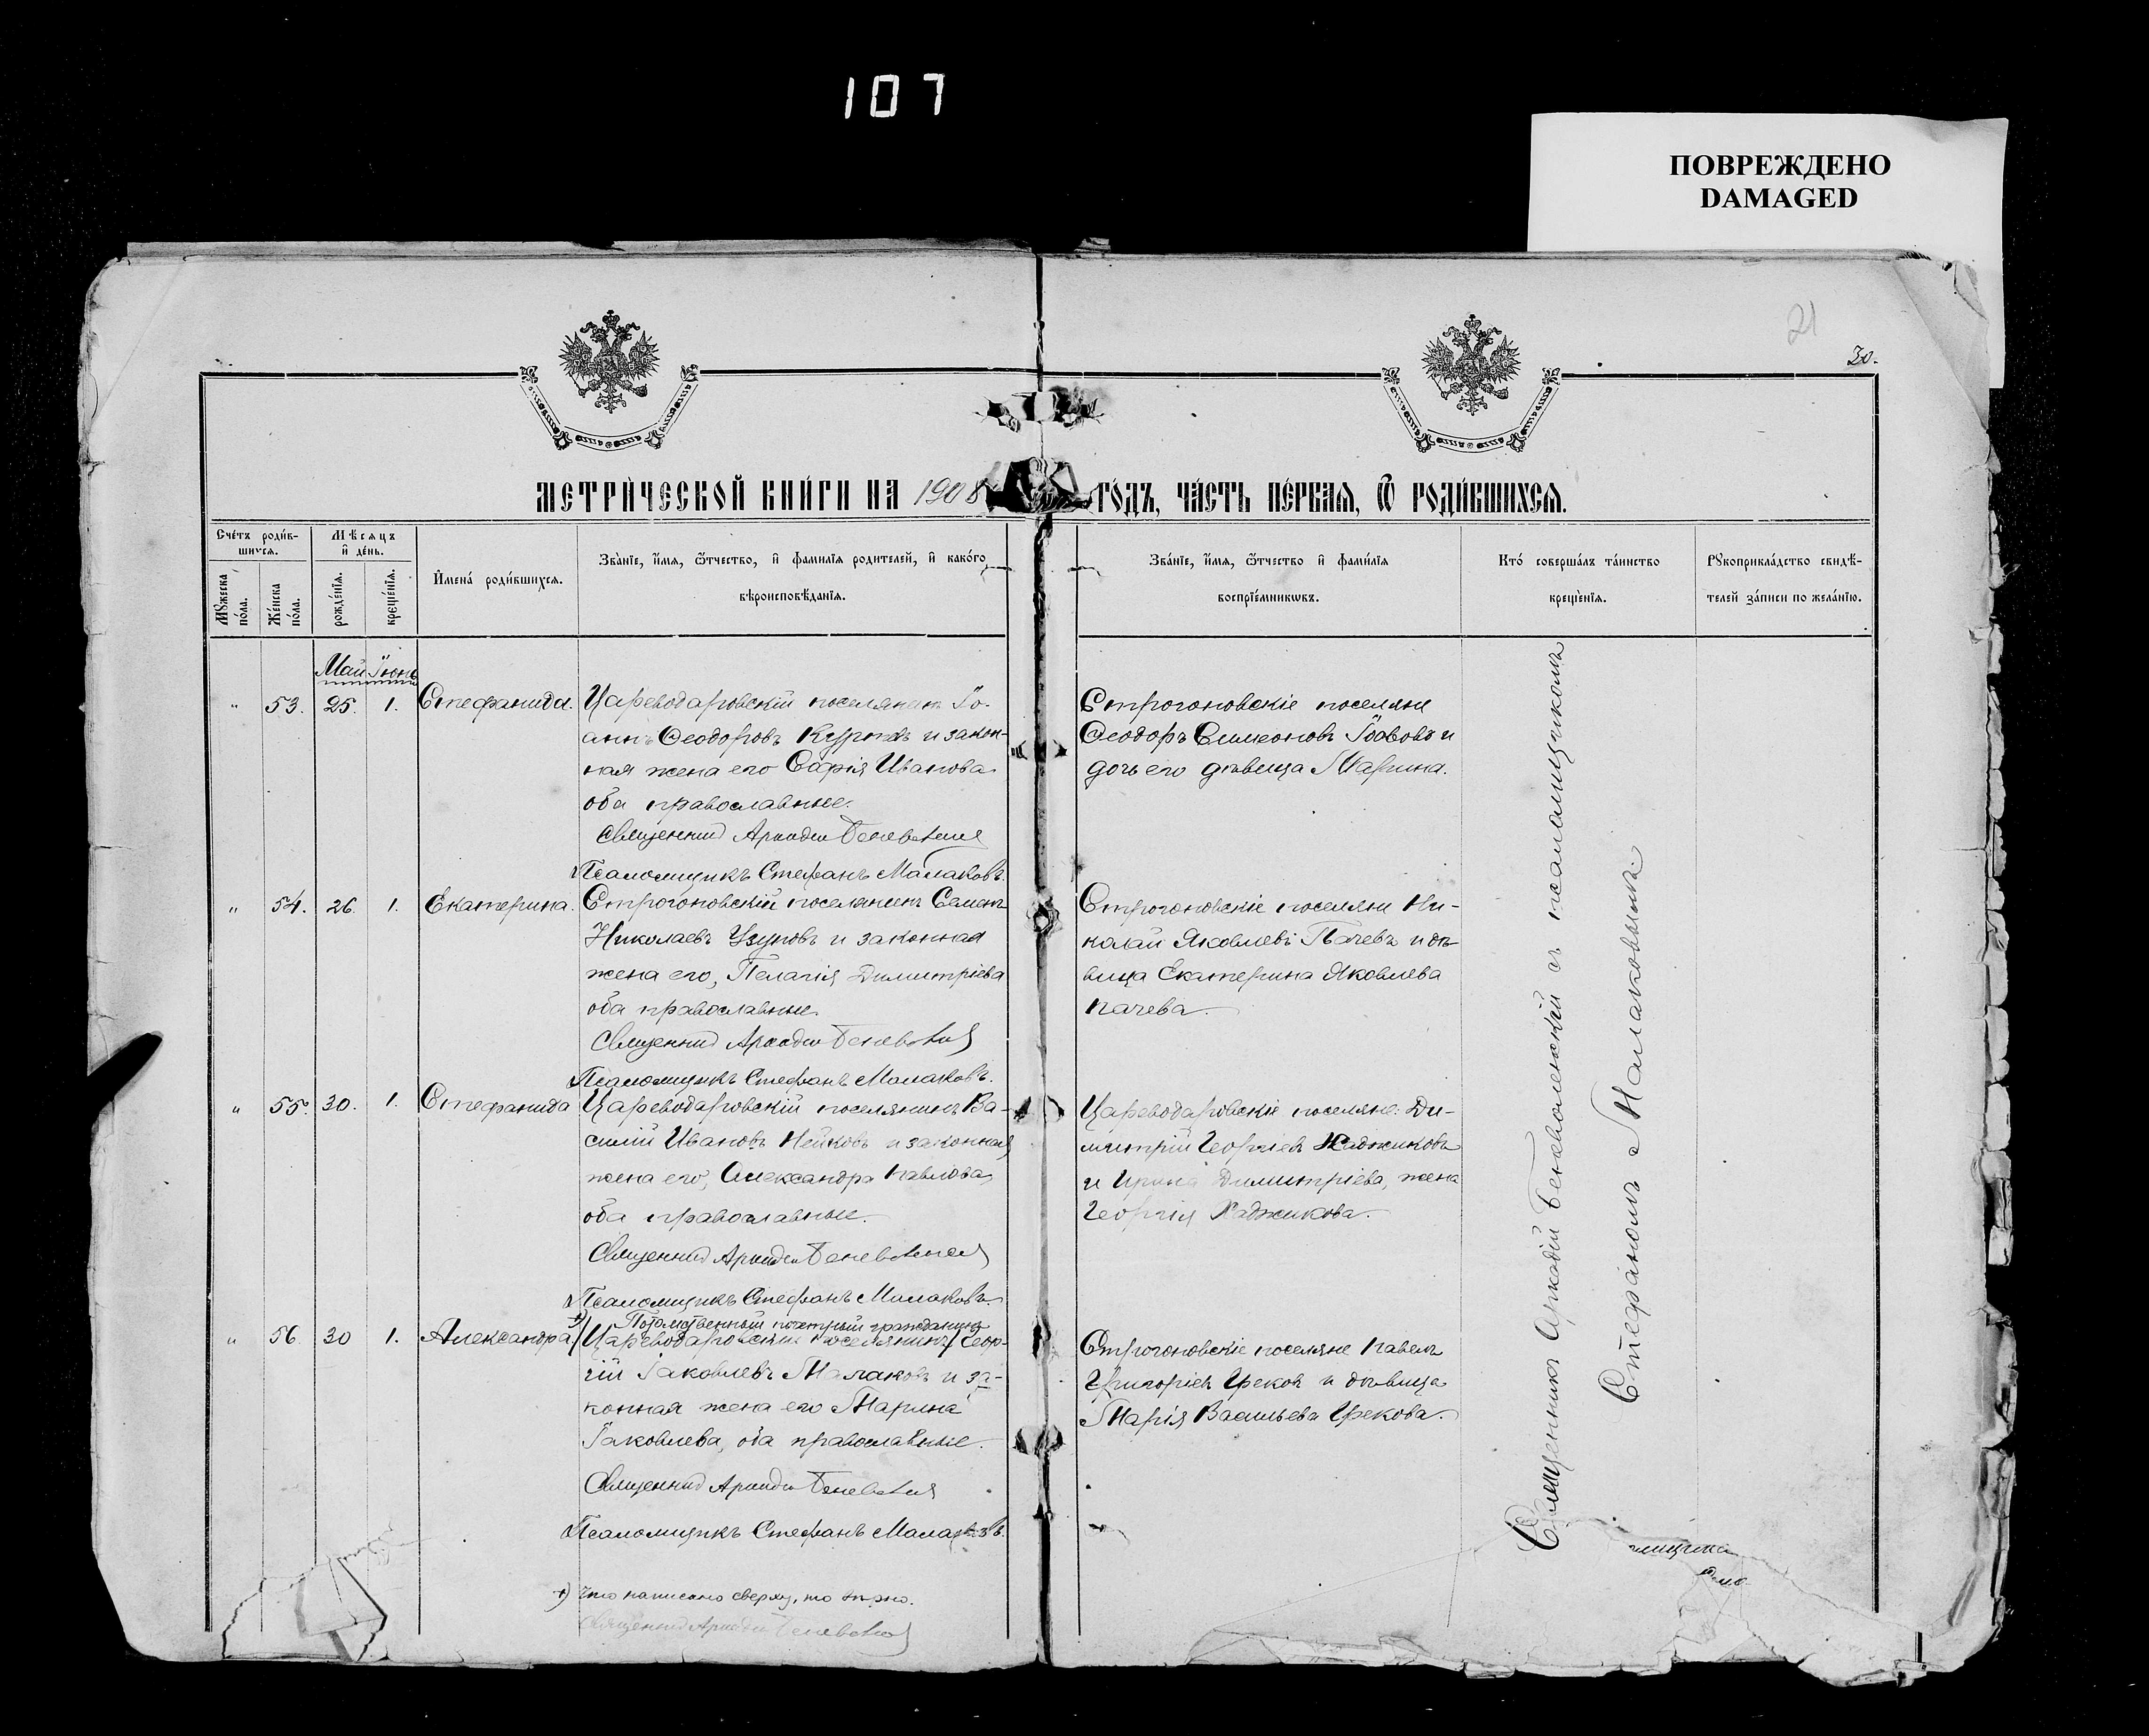 107
ПОВРЕЖДЕНО
DAMAGED
21
30.
МЕТРИЧЕСКОЙ КНИГИ НА 1908
ГОДЪ, ЧАСТЬ ПЕРВАЯ, Ѿ РОДИВШИХСЯ.
Счетъ родив-
шихся.
Мѣсяцъ
и день.
Мужеска
пола.
Женска
пола.
рожденія.
крещенія.
Имена родившихся.
Званіе, имя, ѿтчество, и фамилія родителей, и какого
вѣроисповѣданія.
Званіе, имя, ѿтчество и фамилія
воспріемниковъ.
Кто совершалъ таинство
крещенія.
Рукоприкладство свидѣ-
телей записи по желанію.
Май Іюнь
" 53. 25. 1. Стефанида.
Цареводаровскій поселянинъ Іо-
аннъ Феодоровъ и закон-
ная жена его Софія Иванова
оба православные.
Священник Аркадій
Псаломщикъ Стефанъ Малаковъ.
Строгоновскіе поселяне
Феодоръ Симеоновъ и
дочь его дѣвица Марина.
" 54. 26. 1. Екатерина.
Строгоновскій поселянинъ Семенъ
Николаевъ Узуновъ и законная
жена его, Пелагія Димитріева
оба православные.
Священник Аркадій
Псаломщикъ Стефанъ Малаковъ.
Строгоновскіе поселяне Ни-
колай Яковлевъ Пачевъ и дѣ-
вица Екатерина Яковлева
Пачева.
" 55. 30. 1. Стефанида
Цареводаровскій поселянинъ Ва-
силій Ивановъ Нейковъ и законная
жена его, Александра Павлова,
оба православные.
Священник Аркадій
Псаломщикъ Стефанъ Малаковъ.
Цареводаровскіе поселяне: Ди-
митрій Георгіевъ Хаджиковъ
и Ирина Димитріева, жена
Георгія Хаджикова.
" 56 30 1. Александра
Потомственный почетный гражданинъ
Цареводаровскій поселянинъ Геор-
гій Іаковлевъ Малаковъ и за-
конная жена его Марина
Іаковлева, оба православные.
Священник Аркадій
Псаломщикъ Стефанъ Малаковъ.
Строгоновскіе поселяне Павелъ
Григоріевъ Грековъ и дѣвица
Марія Васильева Грекова.
Священникъ Аркадій Беневоленскій съ псаломщикомъ
Стефаномъ Малаковымъ.
+) Что написано сверху, то вѣрно.
Священник Аркадій